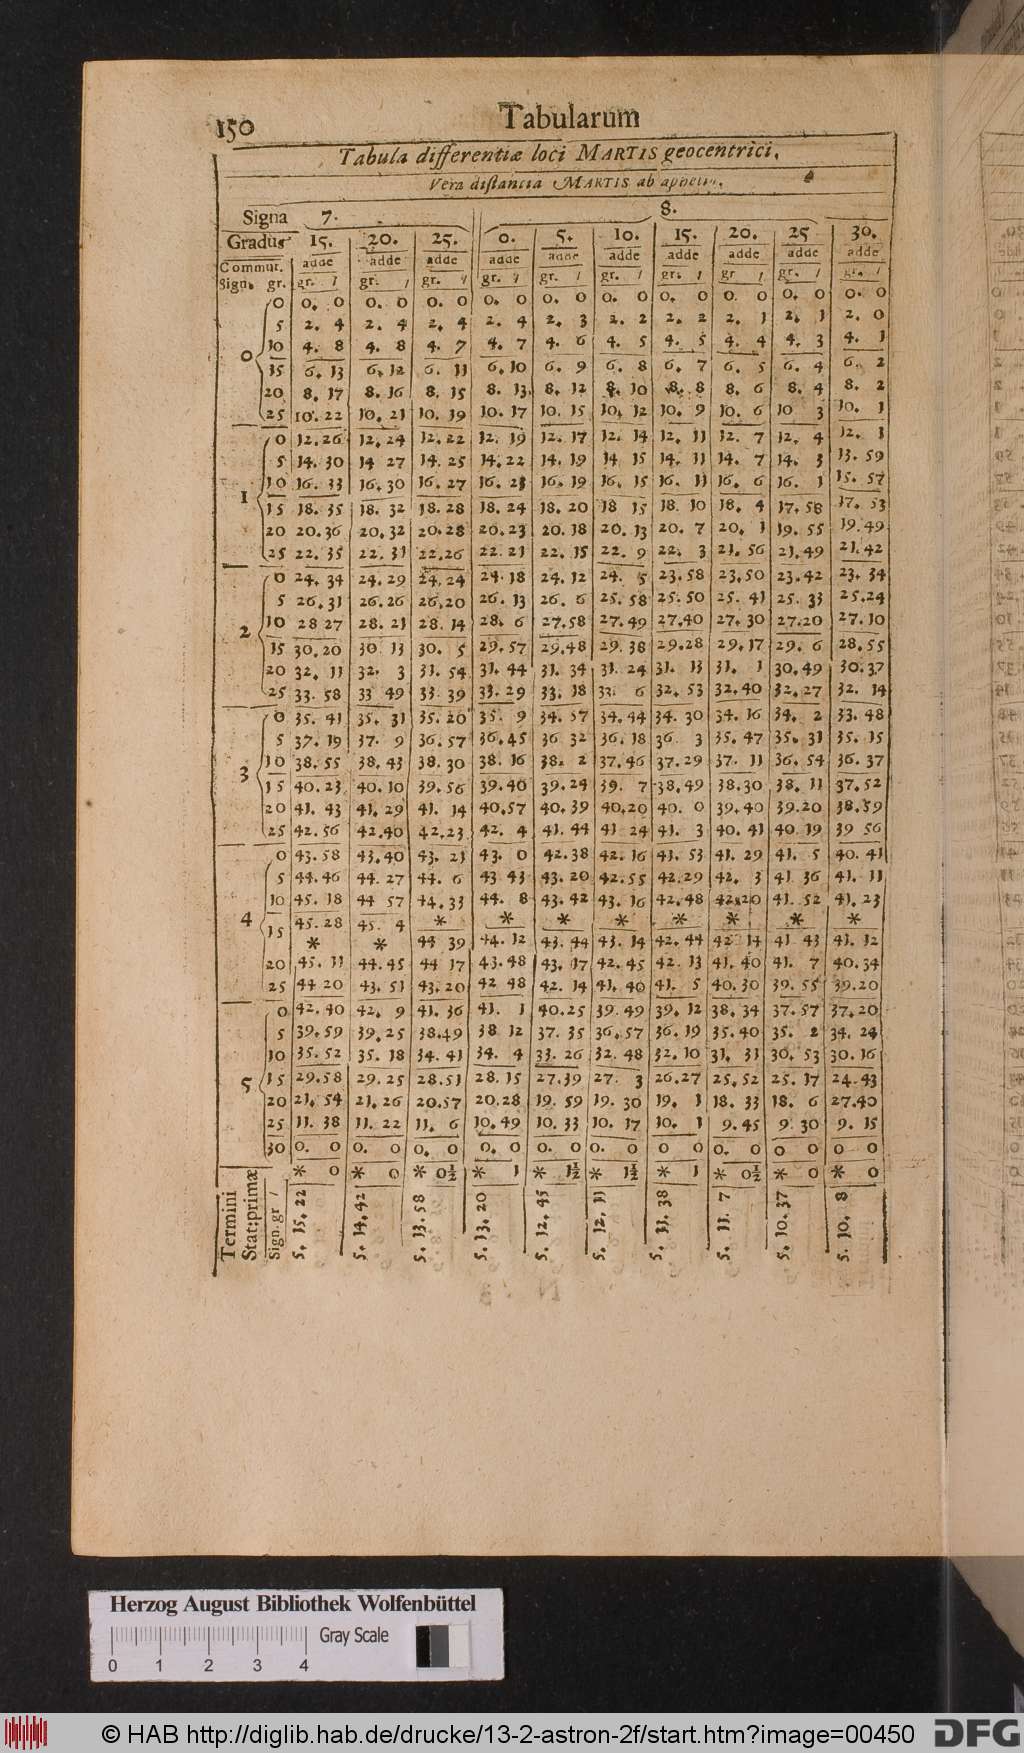 150 Tabularum
Tabula differentiæ loci MARTIS geocentrici.
Vera distancia MARTIS ab
Signa 7. 8.
Gradus 15. 20. 25. 0. 5. 10. 15. 20. 25 30.
Commut. adde adde adde adde adde adde adde adde adde adde
Sign. gr. gr. / gr. / gr. / gr. / gr. / gr. / gr. / gr / gr. / gr. /
0 0. 0 0. 0 0. 0 0. 0 0. 0 0. 0 0. 0 0. 0 0. 0 0. 0
5 2. 4 2. 4 2. 4 2. 4 2. 3 2. 2 2. 2 2. 1 2. 1 2. 0
0 10 4. 8 4. 8 4. 7 4. 7 4. 6 4. 5 4. 5 4. 4 4. 3 4. 1
15 6. 13 6. 12 6. 11 6. 10 6. 9 6. 8 6. 7 6. 5 6. 4 6. 2
20 8. 17 8. 16 8. 15 8. 13. 8. 12 8. 10 8. 8 8. 6 8. 4 8. 2
25 10. 22 10. 21 10. 19 10. 17 10. 15 10. 12 10. 9 10. 6 10 3 10. 1
0 12.26 12. 24 12. 22 12. 19 12. 17 12. 14 12. 11 12. 7 12. 4 12. 1
5 14. 30 14 27 14. 25 14. 22 14. 19 14 15 14. 11 14. 7 14. 3 13. 59
1 10 16. 33 16. 30 16. 27 16. 23 16. 19 16. 15 16. 11 16. 6 16. 1 15. 57
15 18. 35 18. 32 18. 28 18. 24 18. 20 18 15 18. 10 18. 4 17. 58 17. 53
20 20.36 20. 32 20.28 20.23 20. 18 20. 13 20. 7 20. 1 19. 55 19. 49
25 22. 35 22. 31 22.26 22. 21 22. 15 22. 9 22. 3 21. 56 21.49 21.42
0 24. 34 24. 29 24. 24 24. 18 24. 12 24. 5 23.58 23.50 23.42 23. 34
5 26.31 26.26 26.20 26. 13 26. 6 25. 58 25. 50 25. 41 25. 33 25.24
2 10 28 27 28. 21 28. 14 28. 6 27.58 27.49 27.40 27. 30 27.20 27.10
15 30.20 30 13 30. 5 29.57 29.48 29. 38 29.28 29.17 29. 6 28.55
20 32. 11 32. 3 31. 54 31. 44 31. 34 31. 24 31. 13 31. 1 30.49 30.37
25 33. 58 33 49 33. 39 33. 29 33. 18 33. 6 32. 53 32.40 32.27 32. 14
0 35. 41 35. 31 35.20 35. 9 34. 57 34.44 34. 30 34. 16 34. 2 33. 48
5 37. 19 37. 9 36. 57 36.45 36 32 36. 18 36 3 35. 47 35. 31 35. 15
3 10 38. 55 38. 43 38. 30 38. 16 38. 2 37.46 37.29 37. 11 36. 54 36. 37
15 40.23 40. 10 39.56 39.40 39.24 39. 7 38.49 38.30 38. 11 37.52
20 41. 43 41. 29 41. 14 40.57 40. 39 40.20 40. 0 39.40 39.20 38.59
25 42.56 42.40 42.23 42. 4 41. 44 41 24 41. 3 40. 41 40 19 39 56
0 43. 58 43.40 43. 21 43. 0 42.38 42. 16 41. 53 41. 29 41. 5 40. 41
5 44.46 44. 27 44. 6 43 43 43. 20 42.55 42.29 42. 3 41 36 41. 11
10 45. 18 44 57 44.33 44. 8 43. 42 43. 16 42.48 42.20 41. 52 41.23
4 15 45. 28 45. 4 * * * * * * * *
* * 44 39 44. 12 43. 44 43. 14 42. 44 42 14 41 43 41. 12
20 45. 11 44.45 44 17 43.48 43. 17 42. 45 42. 13 41. 40 41. 7 40.34
25 44 20 43. 51 43.20 42 48 42. 14 41. 40 41. 5 40.30 39.55 39.20
0 42. 40 42. 9 41. 36 41. 1 40.25 39.49 39. 12 38. 34 37.57 37.20
5 39.59 39.25 38.49 38 12 37. 35 36.57 36. 19 35.40 35. 2 34. 24
10 35. 52 35. 18 34. 41 34. 4 33. 26 32. 48 32. 10 31. 31 30. 53 30. 16
5 15 29.58 29. 25 28.51 28. 15 27.39 27. 3 26.27 25.52 25. 17 24.43
20 21. 54 21. 26 20.57 20.28 19. 59 19. 30 19. 1 18. 33 18. 6 27.40
25 11. 38 11. 22 11. 6 10.49 10. 33 10. 17 10. 1 9.45 9 30 9. 15
30 0. 0 0. 0 0. 0 0. 0 0. 0 0. 0 0 0 0. 0 0 0 0 0
* 0 * 0 * 0½ * 1 * 1½ * 1½ * 1 * 0½ * 0 * 0
Termini
Stat:primæ
Sign. gr /
5. 15. 22 5. 14. 42 5. 13. 58 5. 13. 20 5. 12. 45 5. 12. 11 5. 11. 38 5. 11. 7 5. 10. 37 5. 10. 8
Herzog August Bibliothek Wolfenbüttel
Gray Scale
0 1 2 3 4
© HAB http://diglib.hab.de/drucke/13-2-astron-2f/start.htm?image=00450 DFG